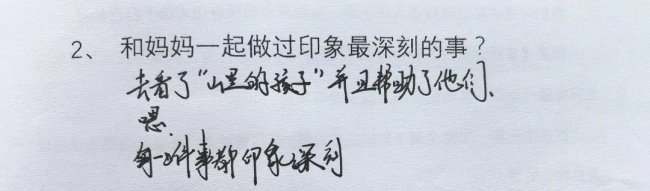 2、 和妈妈一起做过印象最深刻的事？
去看了“山里的孩子”并且帮助了他们、
嗯.
每一件事都印象深刻